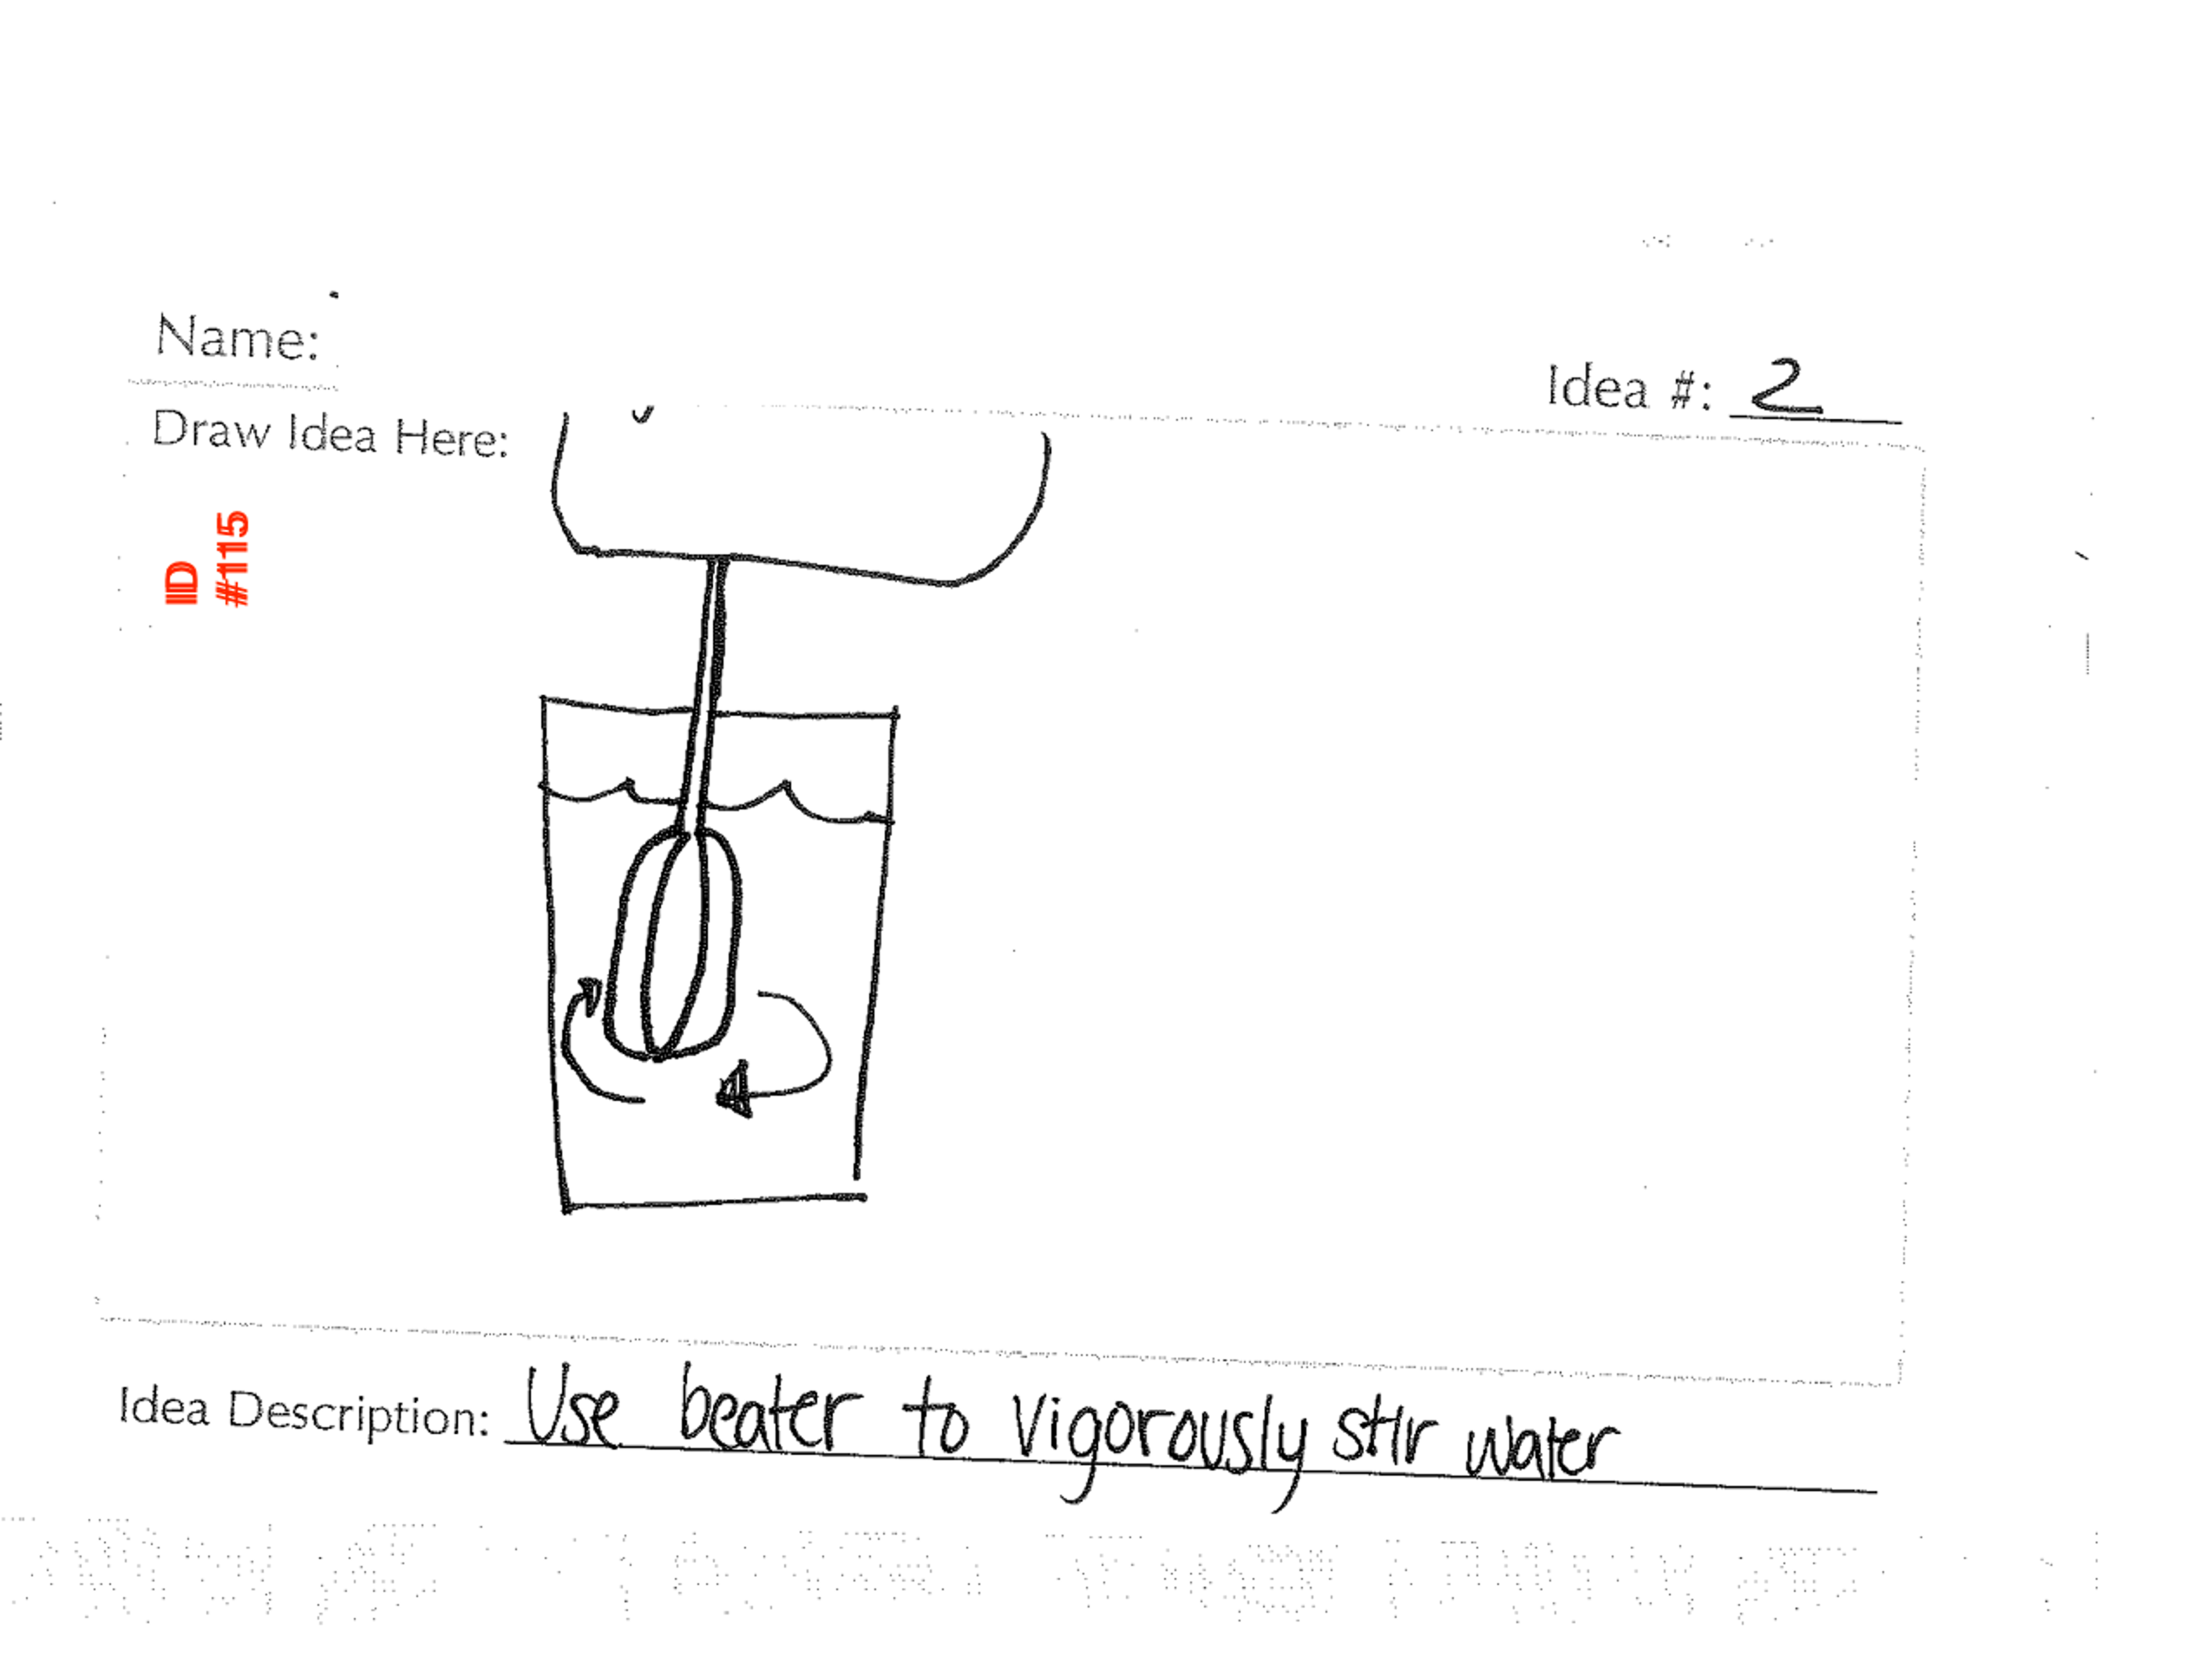 Name:
Idea #: 2
Draw Idea Here:
ID
#115
Idea Description: Use beater to vigorously stir water